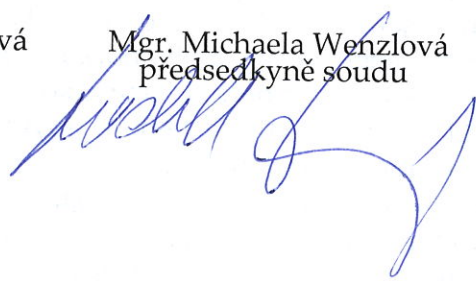 vá Mgr. Michaela Wenzlová
předsedkyně soudu